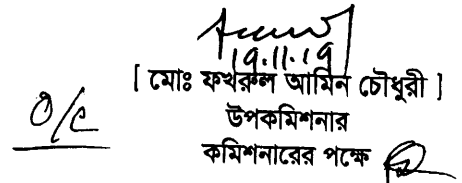 19.11.19
[ মোঃ ফখরুল আমিন চৌধুরী ]
উপকমিশনার
কমিশনারের পক্ষে
O/C